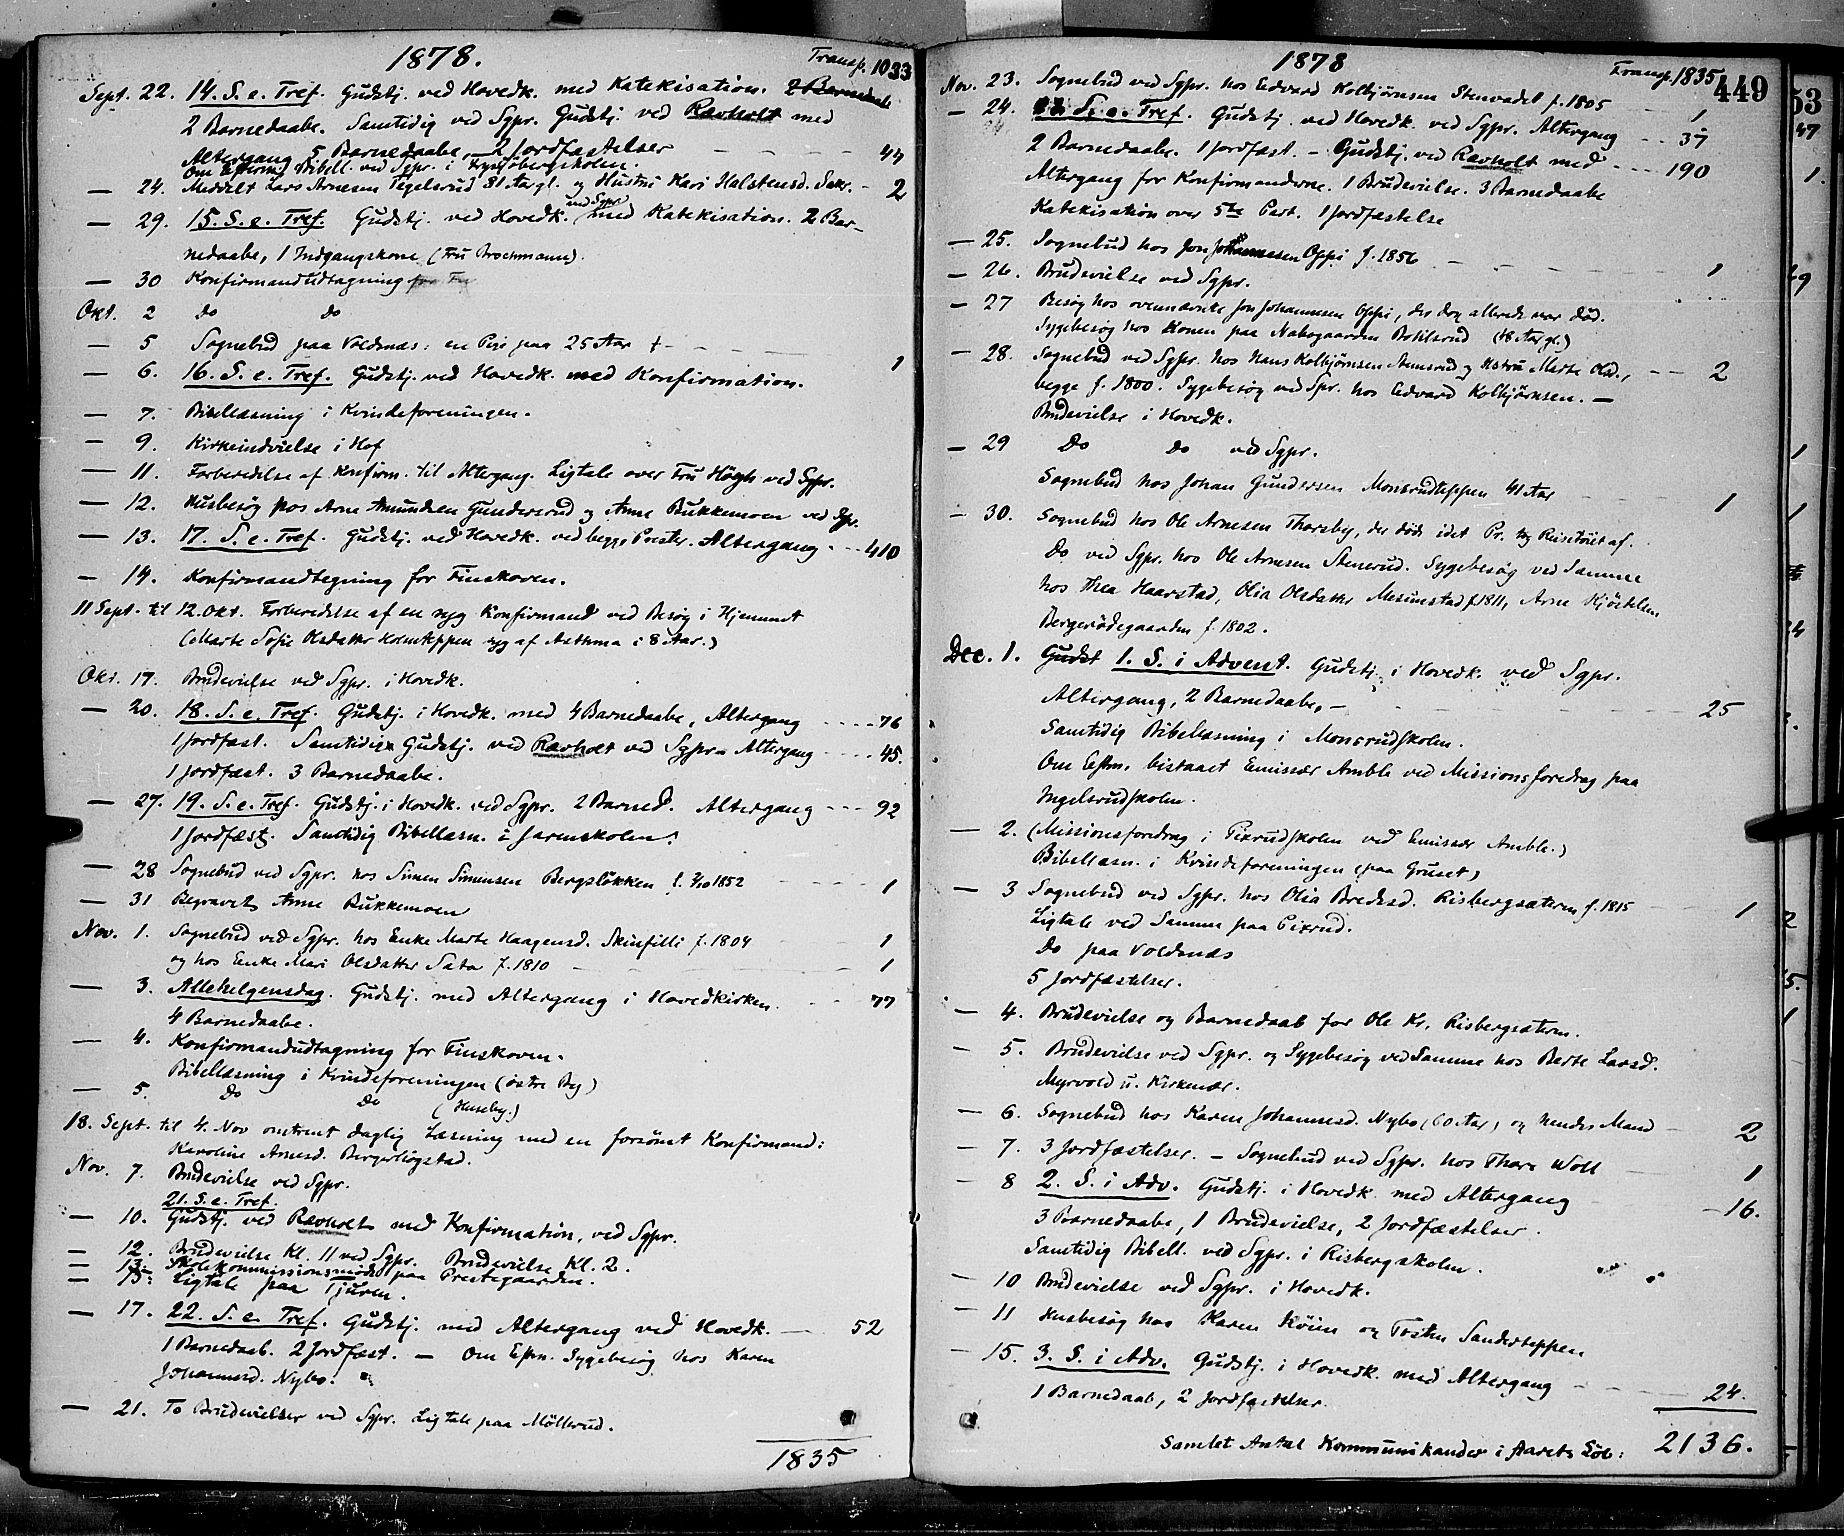 1878.
Transp. 1033
Sept. 22. 14. S. e. Tref. Gudstj. ved Hovedk. med Katekisation.
2 Barnedaabe. Samtidig ved Sgpr. Gudstj. ved Ravholt med
Altergang 5 Barnedaabe, 2 Jordfæstelser - - - 44
Om Efterm. Bibell. ved Sgpr. i
— 24. Meddelt Lars Arnesen Tegelsrud 81 Aar gl. og Hustru Kari Halstensd. Sakr. - 2
— 29. 15. S. e. Tref. Gudstj. ved Hovedk. ved Sgpr. med Katekisation. 2 Bar-
nedaabe, 1 Indgangskone (Fru Brochmann).
— 30 Konfirmandudtagning
Okt. 2 Do Do
— 5 Sognebud paa Voldnæs: en Pige paa 25 Aar + - - - 1
— 6. 16. S. e. Tref. Gudstj. ved Hovedk. med Konfirmation.
— 7. Bibellæsning i Kvindeforeningen.
— 9. Kirkeindvielse i Hof
— 11. Forberedelse af Konfirm. til Altergang. Ligtale over Fru Høyh ved Sgpr.
— 12. Husbesøg hos Arne Amundsen Gundersrud og Anne Bukkemoen ved Sgpr.
— 13. 17. S. e. Tref. Gudstj. ved Hovedk. ved begge Præster. Altergang - - - 410
— 14. Konfirmandtegning for Finskoven.
11 Sept. til 12. Okt. Forberedelse af en syg Konfirmand ved Besøg i Hjemmet
(Marte Sofie Olsdatter Holmteppen syg af Asthma i 8 Aar.)
Okt. 17. Brudevielse ved Sgpr. i Hovedk.
— 20. 18. S. e. Tref. Gudstj. i Hovedk. med 4 Barnedaabe, Altergang - - - - 76
1 Jordfæst. Samtidig Gudstj. ved Ravholt ved Sgpr. Altergang - - - 45.
1 Jordfæst. 3 Barnedaabe.
— 27. 19. S. e. Tref. Gudstj. i Hovedk. ved Sgpr. 2 Barned. Altergang - - - 92
1 Jordfæst. Samtidig Bibellæsn. i Jarenskolen.
— 28 Sognebud ved Sgpr. hos Simen Simensen Bergsløkken f. 3/10 1852 - - - 1
— 31 Begravet Anne Bukkemoen
Nov. 1. Sognebud ved Sgpr. hos Enke Marte Haagensd. Skinfilli f. 1804 1
og hos Enke Mari Olsdatter Sata f. 1810 - - - 1
— 3. Allehelgensdag. Gudstj. med Altergang i Hovedkirken - - - 77
4 Barnedaabe.
— 4. Konfirmandudtagning for Finskoven.
Bibellæsning i Kvindeforeningen (østre By)
— 5. Do Do (Huseby.)
18. Sept. til 4. Nov omtrent daglig Læsning med en forsømt Konfirmand:
Karoline Arnesd. Bergerhøgstad.
Nov. 7. Brudevielse ved Sgpr.
21. S. e. Tref.
— 10. Gudstj. ved Ravholt med Konfirmation, ved Sgpr.
— 12. Brudevielse Kl. 11 ved Sgpr. Brudevielse Kl. 2.
— 13. Skolekommissionsmøde paa Præstegaarden.
— 15. Ligtale paa Tjuren.
— 17. 22. S. e. Tref. Gudstj. med Altergang ved Hovedk. — 52
1 Barnedaab. 2 Jordfæst. — Om Eftm. Sygebesøg hos Karen
Johannesd. Nybo.
— 21. To Brudevielser ved Sgpr. Ligtale paa Møllerud.
1835
1878
Transp. 1835
449
Nov. 23. Sognebud ved Sgpr. hos Edvard Kolbjørnsen Stenvadet f. 1805 — 1
— 24. S. e. Tref. Gudstj. ved Hovedk. ved Sgpr. Altergang — 37
2 Barnedaabe. 1 Jordfæst. — Gudstj. ved Ravholt med - - - 190
Altergang for Konfirmanderne. 1 Brudevielse. 3 Barnedaabe
Katekisation over 5te Part. 1 Jordfæstelse
— 25. Sognebud hos Jon Johannesen Oppi f. 1856 - - - 1
— 26. Brudevielse ved Sgpr.
— 27 Besøg hos ovennævnte Jon Johannesen Oppi, der dog allerede var død.
Sygebesøg hos Konen paa Nabogaarden Bohlsrud (48 Aar gl.)
— 28. Sognebud ved Sgpr. hos Hans Kolbjørnsen Stensrud og Hstru Marte Olsd., - - 2
begge f. 1800. Sygebesøg ved Spr. hos Edvard Kolbjørnsen. —
Brudevielse i Hovedk.
— 29 Do Do ved Sgpr.
Sognebud hos Johan Gundersen Monsrudteppen 41 Aar - - - 1
— 30. Sognebud hos Ole Arnesen Thorsby, der døde idet Pr. tog Reisetøiet af.
Do ved Sgpr. hos Ole Arnesen Stenerud. Sygebesøg ved Samme
hos Thea Haarstad, Olia Olsdatter Mesunstad f. 1811, Arne Kjøstelsen
Bergerødegaarden f. 1802.
Dec. 1. 1. S. i Advent. Gudstj. i Hovedk. ved Sgpr.
Altergang, 2 Barnedaabe, — - - - 25
Samtidig Bibellæsning i Monsrudskolen.
Om Eftm. bistaaet Emissær Amble ved Missionsforedrag paa
Ingelsrudskolen.
— 2. (Missionsforedrag i Pixrudskolen ved Emissær Amble.)
Bibellæsn. i Kvindeforeningen (paa Gruset)
— 3 Sognebud ved Sgpr. hos Olia Bredesd. Risbergsæteren f. 1815 - - 1
Ligtale ved Samme paa Pixrud.
Do paa Voldnæs
5 Jordfæstelser.
— 4. Brudevielse og Barnedaab for Ole Kr. Risbergsæteren.
— 5. Brudevielse ved Sgpr. og Sygebesøg ved Samme hos Berte Larsd.
Myrvold u. Kirkenær.
— 6. Sognebud hos Karen Johannesd. Nybo (60 Aar) og hendes Mand - 2
— 7. 3 Jordfæstelser. — Sognebud ved Sgpr. hos Thore Woll 1
— 8 2. S. i Adv. Gudstj. i Hovedk. med Altergang - 16.
3 Barnedaabe, 1 Brudevielse, 2 Jordfæstelser.
Samtidig Bibell. ved Sgpr. i Risbergskolen.
— 10 Brudevielse ved Sgpr. i Hovedk.
— 11 Husbesøg hos Karen Køien og Tosten Sanderteppen
— 15. 3. S. i Adv. Gudstj. i Hovedk. med Altergang - - - 24.
1 Barnedaab, 2 Jordfæstelser.
Samlet Antal Kommunikander i Aarets Løb: 2136.
53